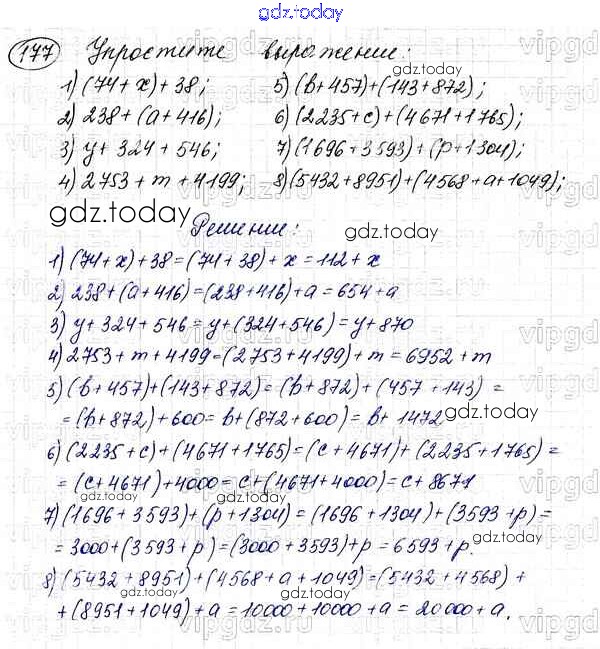 gdz.today
177 Упростите выражение:
1) (74+x)+38; 5) (b+457)+(143+872);
2) 238+(a+416); 6) (2235+c)+(4671+1765);
3) y+324+546; 7) (1696+3593)+(p+1304);
4) 2753+m+4199; 8) (5432+8951)+(4568+a+1049);
gdz.today
Решение:
1) (74+x)+38=(74+38)+x=112+x
2) 238+(a+416)=(238+416)+a=654+a
3) y+324+546=y+(324+546)=y+870
4) 2753+m+4199=(2753+4199)+m=6952+m
5) (b+457)+(143+872)=(b+872)+(457+143)=
=(b+872)+600=b+(872+600)=b+1472
6) (2235+c)+(4671+1765)=(c+4671)+(2235+1765)=
=(c+4671)+4000=c+(4671+4000)=c+8671
7) (1696+3593)+(p+1304)=(1696+1304)+(3593+p)=
=3000+(3593+p)=(3000+3593)+p=6593+p.
8) (5432+8951)+(4568+a+1049)=(5432+4568)+
+(8951+1049)+a=10000+10000+a=20000+a.